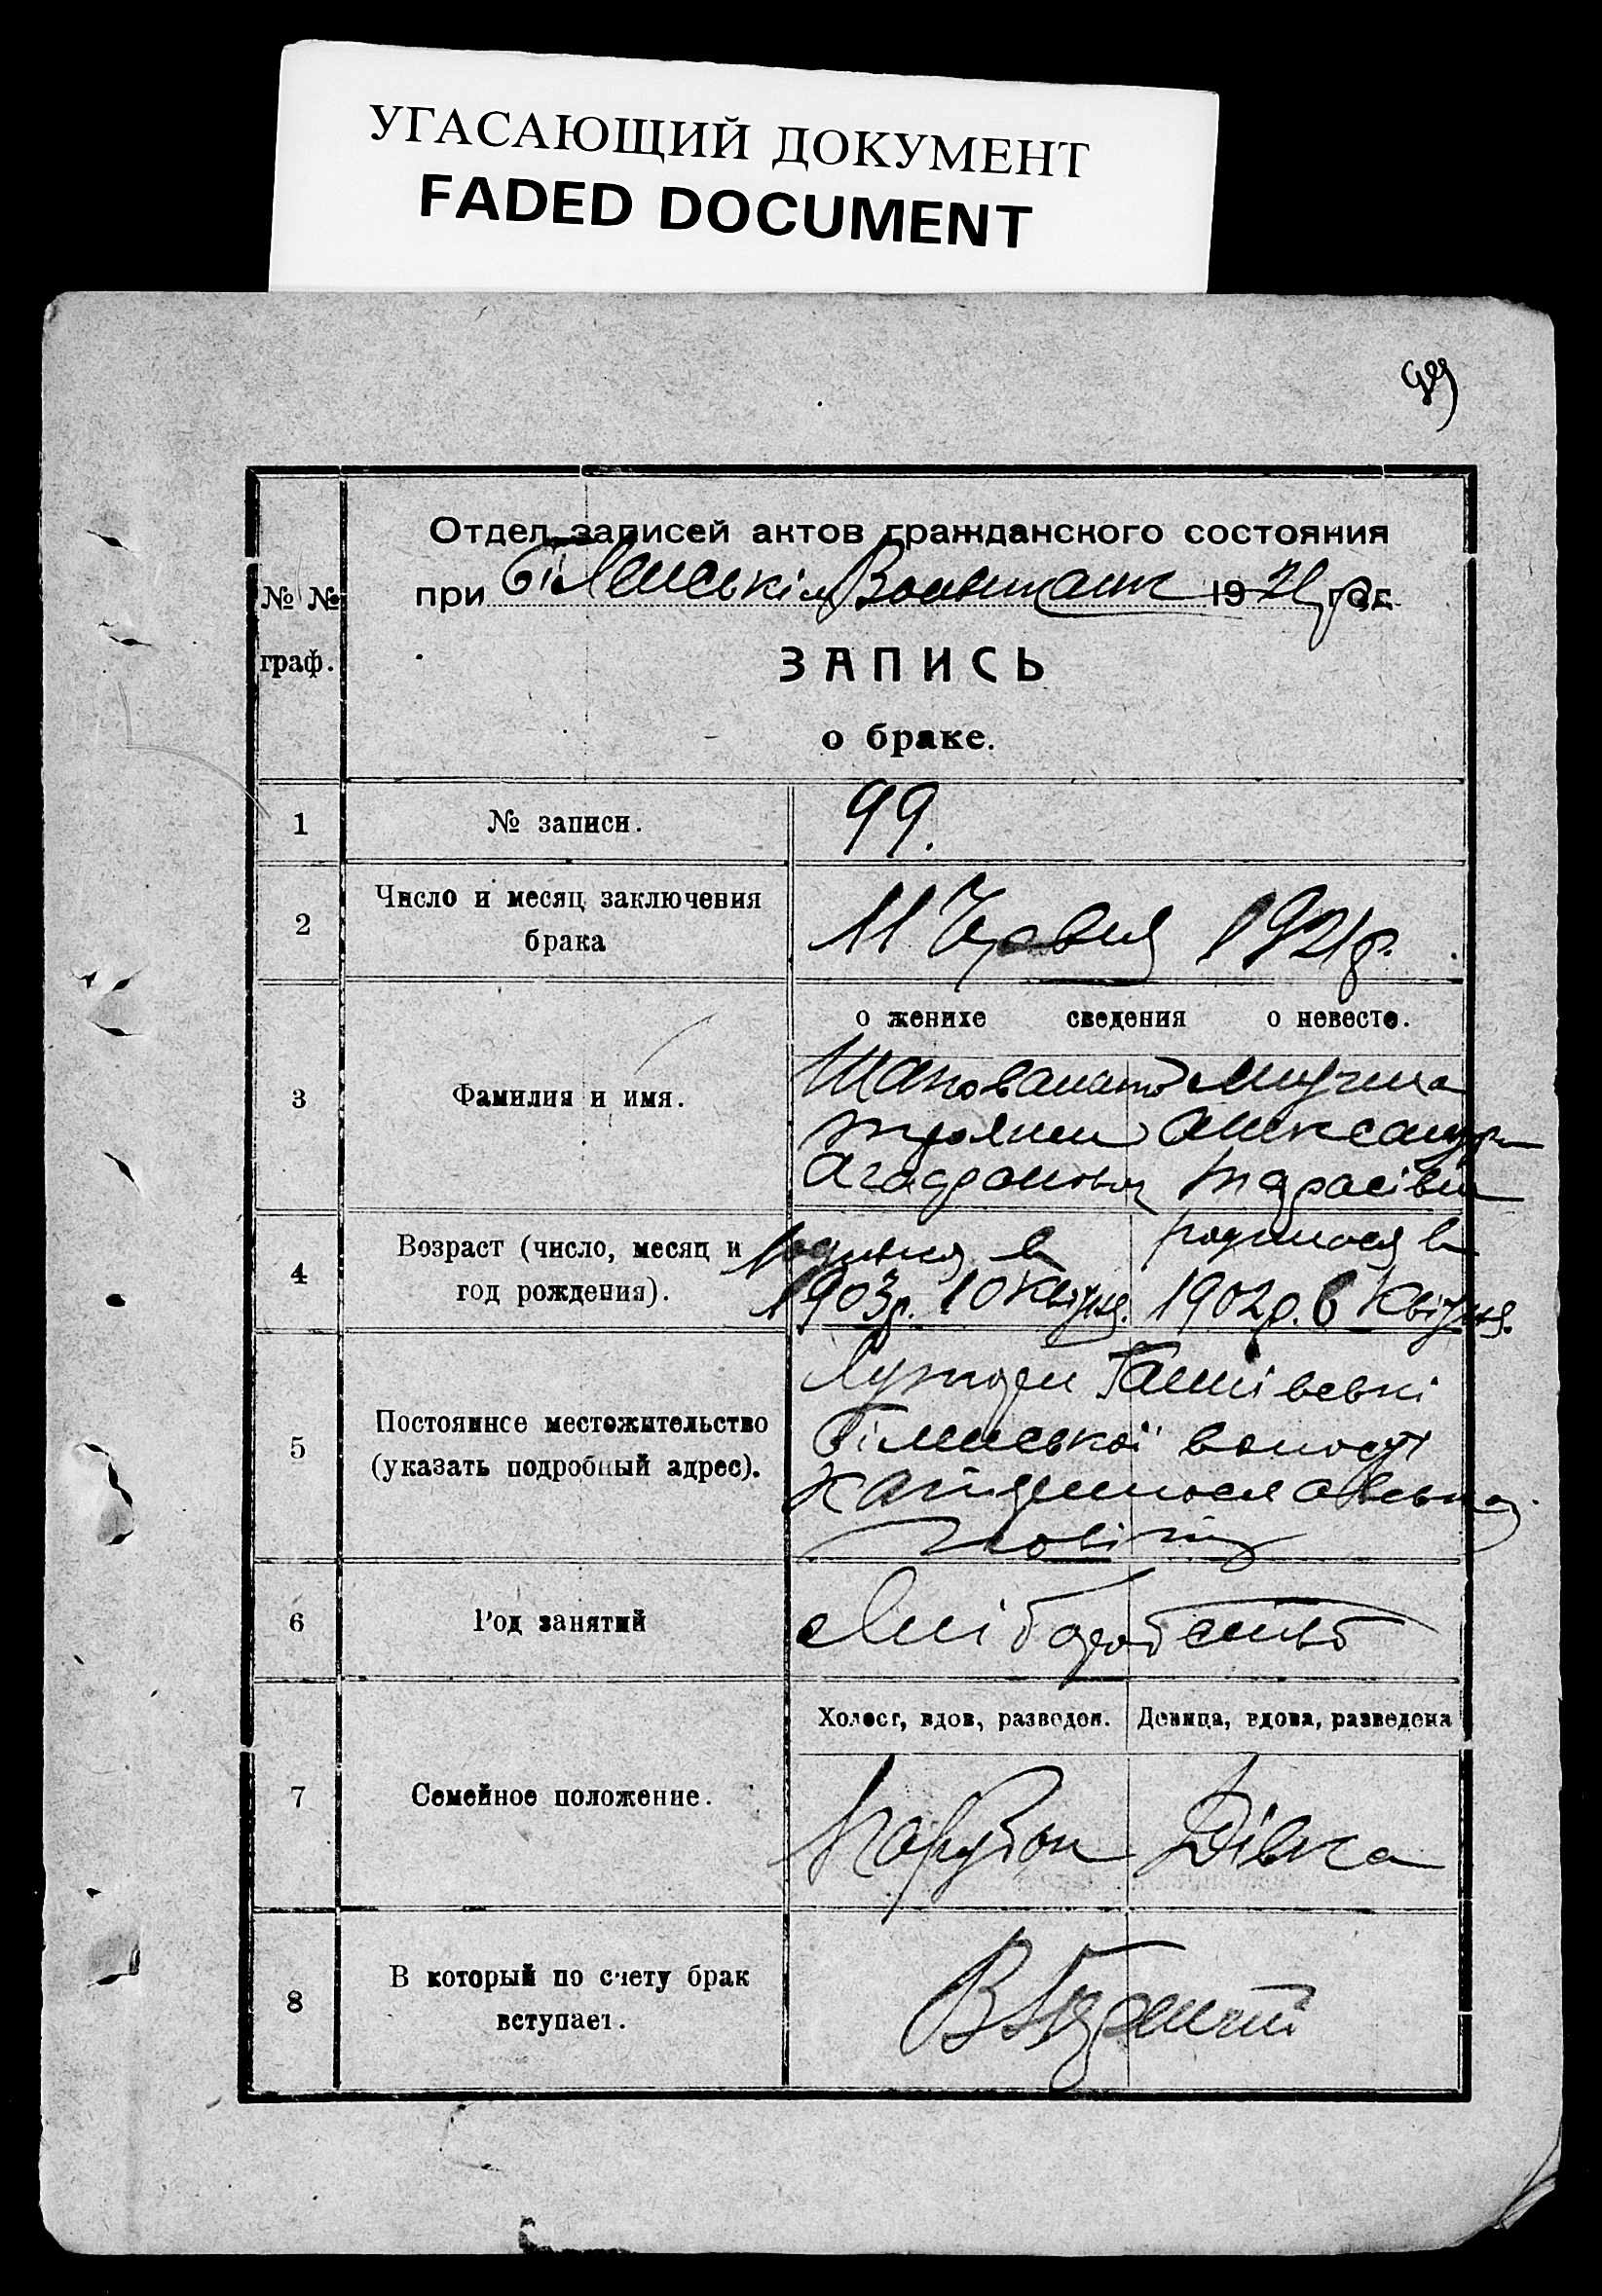 УГАСАЮЩИЙ ДОКУМЕНТ
FADED DOCUMENT
99
Отдел записей актов гражданского состояния
№ №
граф.
при Біленській 1921 р. год
ЗАПИСЬ
о браке.
1
№ записи.
99.
2
Число и месяц заключения
брака
11 Червня 1921 р.
3
Фамилия и имя.
о женихе сведения о невесте.
Шаповалов
Троян
Тарасівна
4
Возраст (число, месяц и
год рождения).
родився в
1903 р. 10 Квітня.
родилася в
1902 р. 6 Квітня.
5
Постоянное местожительство
(указать подробный адрес).
Хутори
Біленської волості
6
Род занятий
Хліборобство
7
Семейное положение.
Холост, вдов, разведен.
Девица, вдова, разведена
Парубок
Дівка
8
В который по счету брак
вступает.
В первий